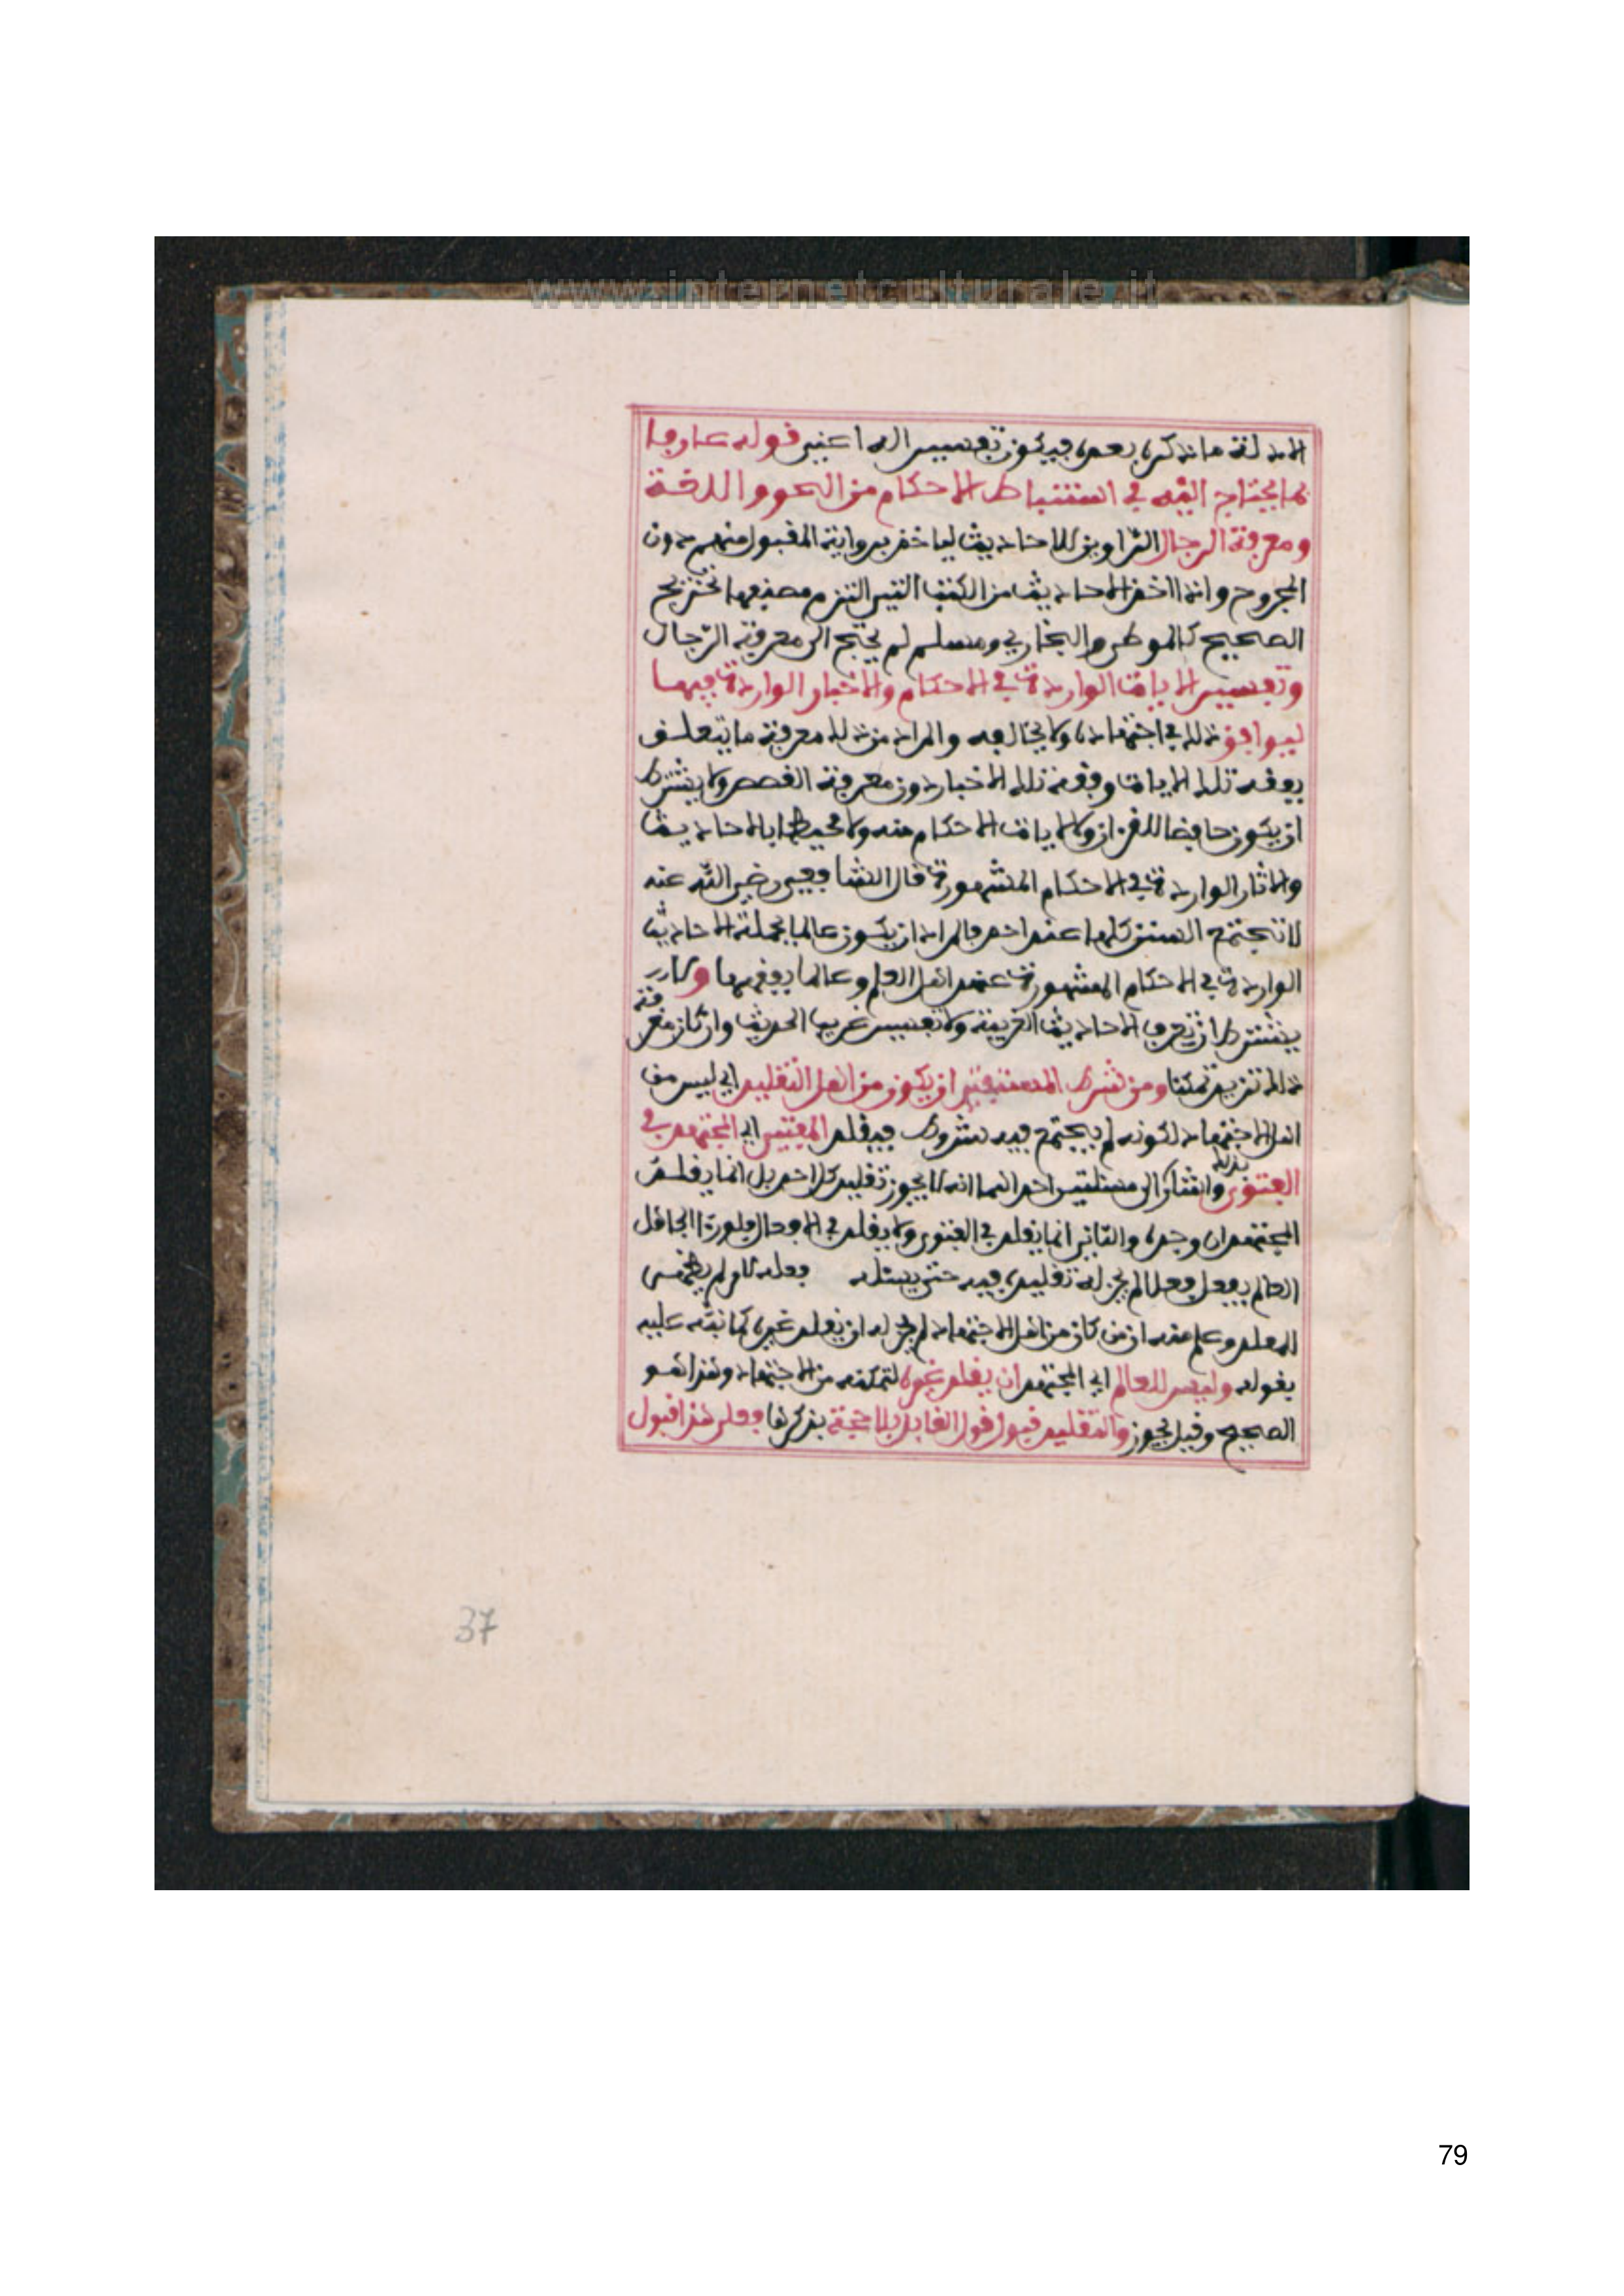 www.internetculturale.it
الادلة ما نذكره بعده فيكون تفسير اله اعني قوله عارفا
بما يحتاج اليه في استنباط الاحكام من النحو واللغة
ومعرفة الرجال الراوين للاحاديث لياخذ برواية المقبول منهم دون
المجروح واذا اخذ الاحاديث من الكتب التي التزم مصنفها تخريج
الصحيح كالموطا والبخاري ومسلم لم يحتج الى معرفة الرجال
وتفسير الايات الواردة في الاحكام والاخبار الواردة فيها
ليوافق ذلك في اجتهاده ولا يخالفه والمراد من ذلك معرفة ما يتعلق
بفقه تلك الايات وفقه تلك الاخبار دون معرفة القصص ولا يشترط
ان يكون حافظا للقران ولا لايات الاحكام منه ولا محيطا بالاحاديث
والاثار الواردة في الاحكام المشهورة قال الشافعي رضي الله عنه
لا تجتمع السنن كلها عند احد فالمراد ان يكون عالما بجملة الاحاديث
الواردة في الاحكام المشهورة عند اهل العلم وعالما بفقهها ولا
يشترط ان يعرف الاحاديث الغريبة ولا تفسير غريب الحديث وان كان معرفة
ذلك تزيده تمكنا ومن شرط المستفتي ان يكون من اهل التقليد اي ليس من
اهل الاجتهاد لكونه لم يجتمع فيه شروط فيقلد المفتي اي المجتهد في
الفتوى واشار بذلك الى مسئلتين احداهما انه لا يجوز تقليد كل احد بل انما يقلد
المجتهد ان وجده والثاني انما يقلد في الفتوى ولا يقلد في الافعال فلو راى الجاهل
العالم يفعل فعلا لم يجز له تقليده فيه حتى يسئله فعله لامر لم يظهر
للمقلد وعلم منه ان من كان من اهل الاجتهاد لم يجز له ان يقلد غيره كما نبه عليه
بقوله وليس للعالم اي المجتهد ان يقلد غيره لتمكنه من الاجتهاد وهذا هو
الصحيح وقيل يجوز والتقليد قبول قول القايل بلا حجة يذكرها فعلى هذا قبول
37
79